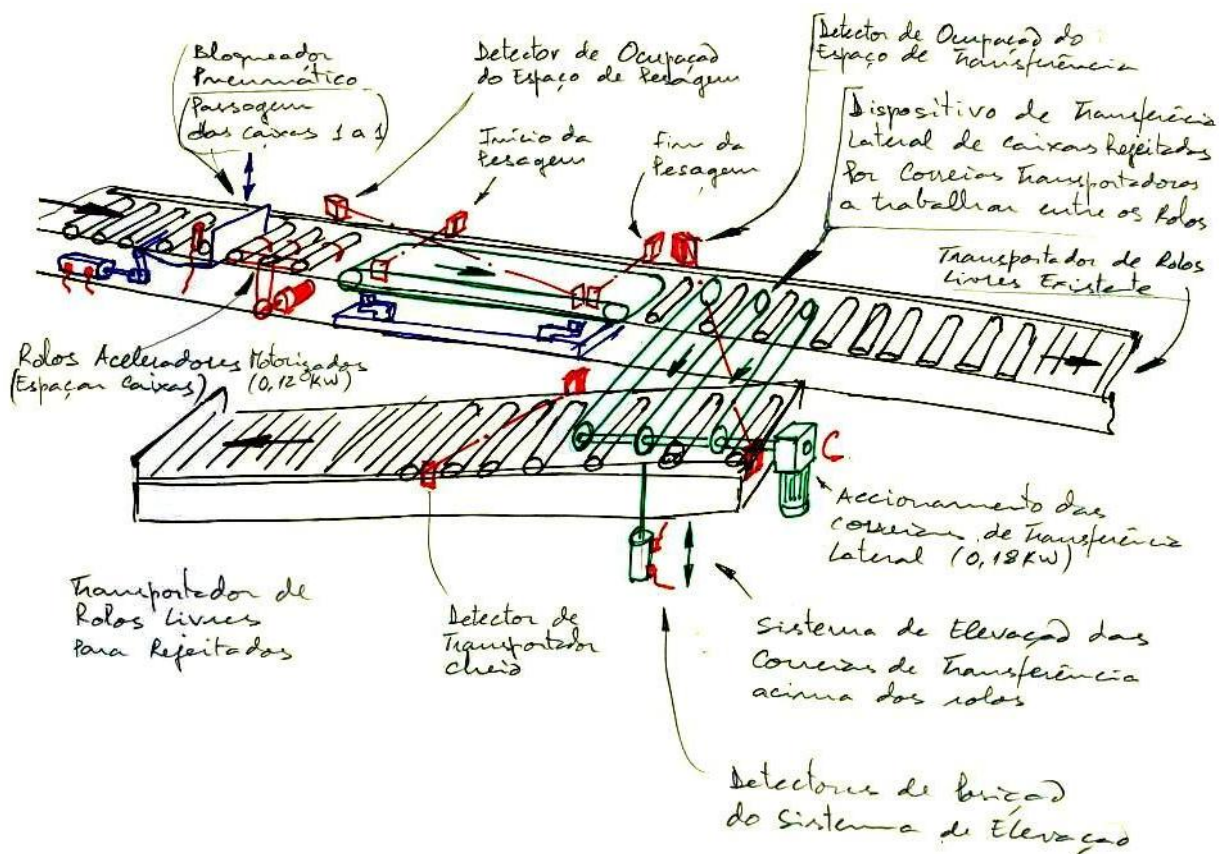 Bloqueador
Pneumático
(Passagem
das caixas 1 a 1)
Detector de Ocupação
do Espaço de Pesagem
Início da
Pesagem
Fim da
Pesagem
Detector de Ocupação do
Espaço de Transferência
Dispositivo de Transferência
Lateral de Caixas Rejeitadas
Por Correias Transportadoras
a trabalhar entre os Rolos
Transportador de Rolos
Livres Existente
Rolos Aceleradores Motorizados
(Espaçar Caixas) (0,12 KW)
C
Accionamento das
Correias de Transferência
Lateral (0,18 KW)
Transportador de
Rolos Livres
Para Rejeitados
Detector de
Transportador
Cheio
Sistema de Elevação das
Correias de Transferência
acima dos rolos
Detectores de Posição
do Sistema de Elevação